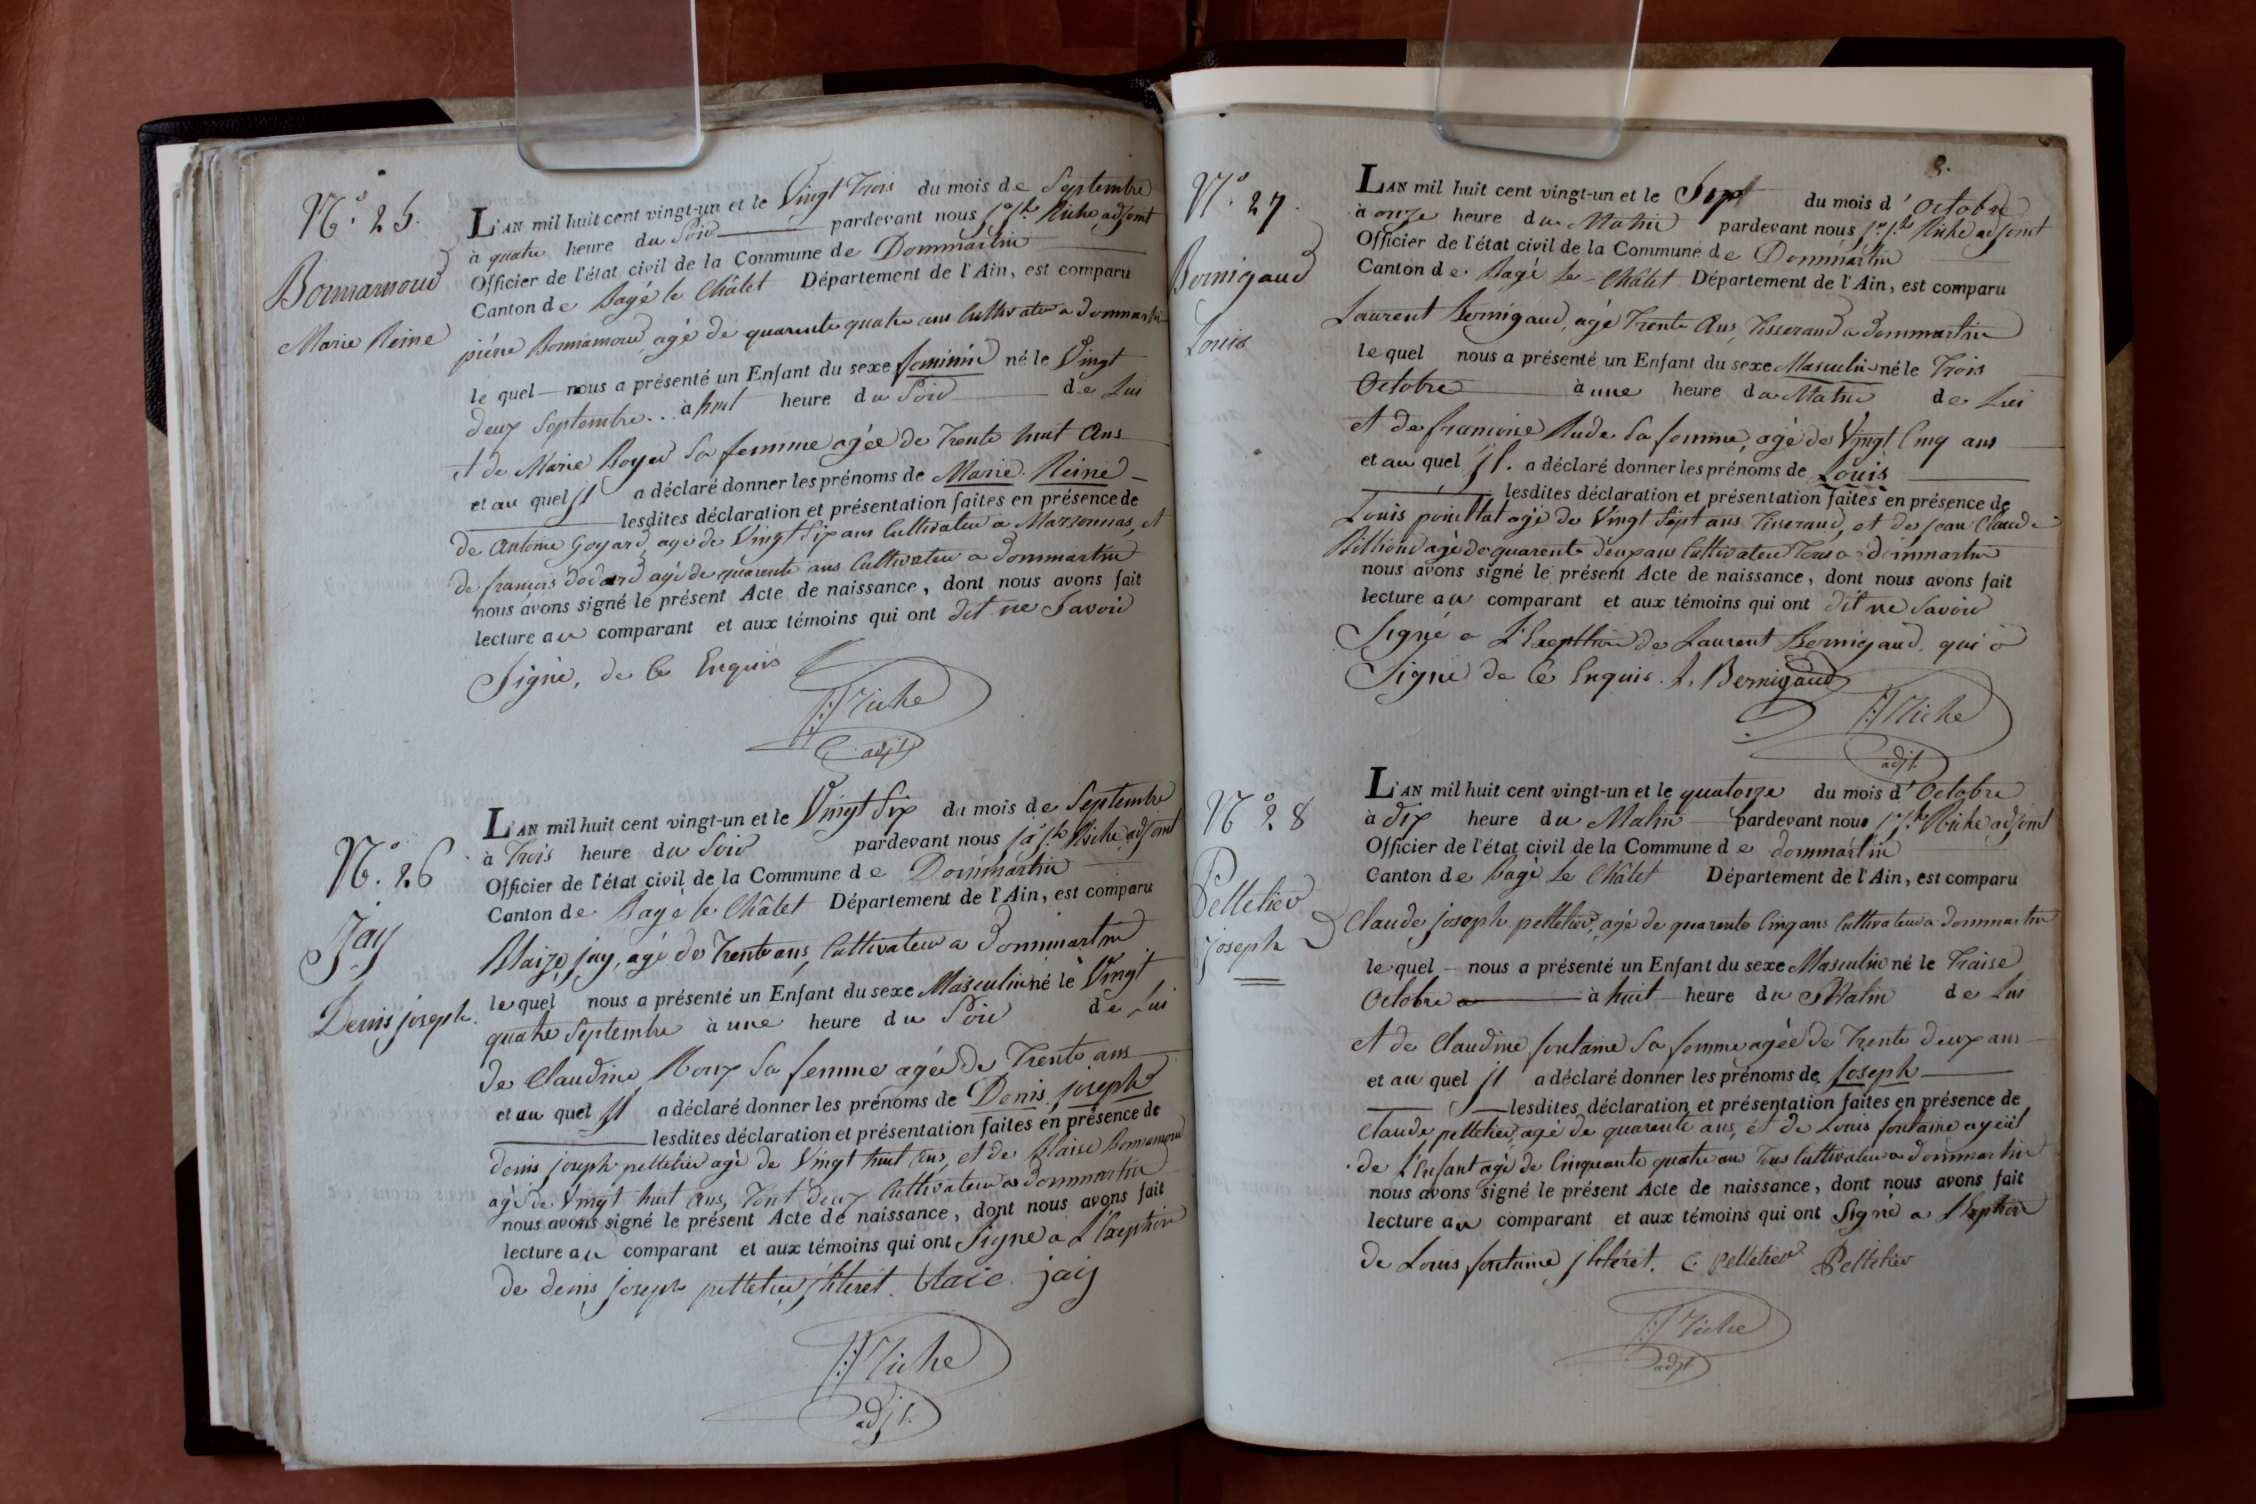 N.° 25.
Bonnamour
Marie Reine
L'AN mil huit cent vingt-un et le Vingt Trois du mois de Septembre
à quatre heure du Soir pardevant nous jph. Riche adjoint
Officier de l'état civil de la Commune de Dommartin
Canton de Bagé le Châlet Département de l'Ain, est comparu
piérre Bonnamour agé de quarente quatre ans Cultivateur a dommartin
le quel nous a présenté un Enfant du sexe feminin né le Vingt
deux Septembre à huit heure du Soir de Lui
et de Marie Boyer Sa femme agée de Trente huit Ans
et au quel jl a déclaré donner les prénoms de Marie Reine
lesdites déclaration et présentation faites en présence de
de Antoine Goyard agé de Vingt Six ans Cultivateur a Marsonnas, et
de françois dodard agé de quarente ans Cultivateur a dommartin
nous avons signé le présent Acte de naissance, dont nous avons fait
lecture au comparant et aux témoins qui ont dit ne Savoir
Signé, de Ce Enquis
Riche
adjt.
N.° 26
Jay
Denis joseph.
L'AN mil huit cent vingt-un et le Vingt Six du mois de Septembre
à Trois heure du Soir pardevant nous jph. Riche adjoint
Officier de l'état civil de la Commune de Dommartin
Canton de Bagé le Châlet Département de l'Ain, est comparu
Blaize jay, agé de Trente ans, Cultivateur a Dommartin
le quel nous a présenté un Enfant du sexe Masculin né le Vingt
quatre Septembre à une heure du Soir de Lui
de Claudine Roux Sa femme agée de Trente ans
et au quel jl a déclaré donner les prénoms de Denis joseph
lesdites déclaration et présentation faites en présence de
denis joseph pelletier agé de Vingt huit Ans, et de Blaise Bonnamour
agé de Vingt huit Ans, Tout deux Cultivateurs a dommartin
nous avons signé le présent Acte de naissance, dont nous avons fait
lecture au comparant et aux témoins qui ont Signé a L'Exeption
de denis joseph pelletier jlleret. blaic jay
Riche
adjt.
8.
N.° 27.
Bernigaud
Louis
L'AN mil huit cent vingt-un et le Sept du mois d'Octobre
à onze heure du Matin pardevant nous jph. Riche adjoint
Officier de l'état civil de la Commune de Dommartin
Canton de Bagé Le Châlet Département de l'Ain, est comparu
Laurent Bernigaud, agé Trente Ans, Tisserand a dommartin
le quel nous a présenté un Enfant du sexe Masculin né le Trois
Octobre à une heure du Matin de Lui
et de françoise Rude Sa femme, agé de Vingt Cinq ans
et au quel jl. a déclaré donner les prénoms de Louis
lesdites déclaration et présentation faites en présence de
Louis agé de Vingt Sept ans Tisserand, et de jean Claude
Billioud agé de quarente deux ans Cultivateur Tous a dommartin
nous avons signé le présent Acte de naissance, dont nous avons fait
lecture au comparant et aux témoins qui ont dit ne Savoir
Signé a L'Exepttion de Laurent Bernigaud. qui a
Signé de Ce Enquis. L. Bernigaud
Riche
adjt.
N.° 28
Pelletier
joseph
L'AN mil huit cent vingt-un et le quatorze du mois d'Octobre
à dix heure du Matin pardevant nous jph. Riche adjoint
Officier de l'état civil de la Commune de dommartin
Canton de Bagé Le Châlet Département de l'Ain, est comparu
Claude joseph pelletier, agé de quarente Cinq ans Cultivateur a dommartin
le quel nous a présenté un Enfant du sexe Masculin né le Traise
Octobre à huit heure du Matin de Lui
et de Claudine fontaine Sa femme agée de Trente deux ans
et au quel jl a déclaré donner les prénoms de Joseph
lesdites déclaration et présentation faites en présence de
Claude pelletier, agé de quarente ans, et de Louis fontaine ayeul
de L'Enfant agé de Cinquante quatre ans Tous Cultivateur a dommartin
nous avons signé le présent Acte de naissance, dont nous avons fait
lecture au comparant et aux témoins qui ont Signé a L'Exption
de Louis fontaine jlleret. C. pelletier Pelletier
Riche
adjt